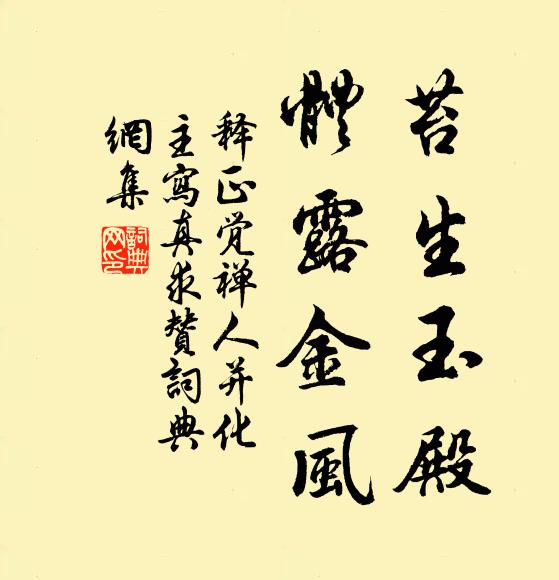 苔生玉殿
體露金風
释正觉禅人并化
主寫真求赞詞典
網集
詞典網印